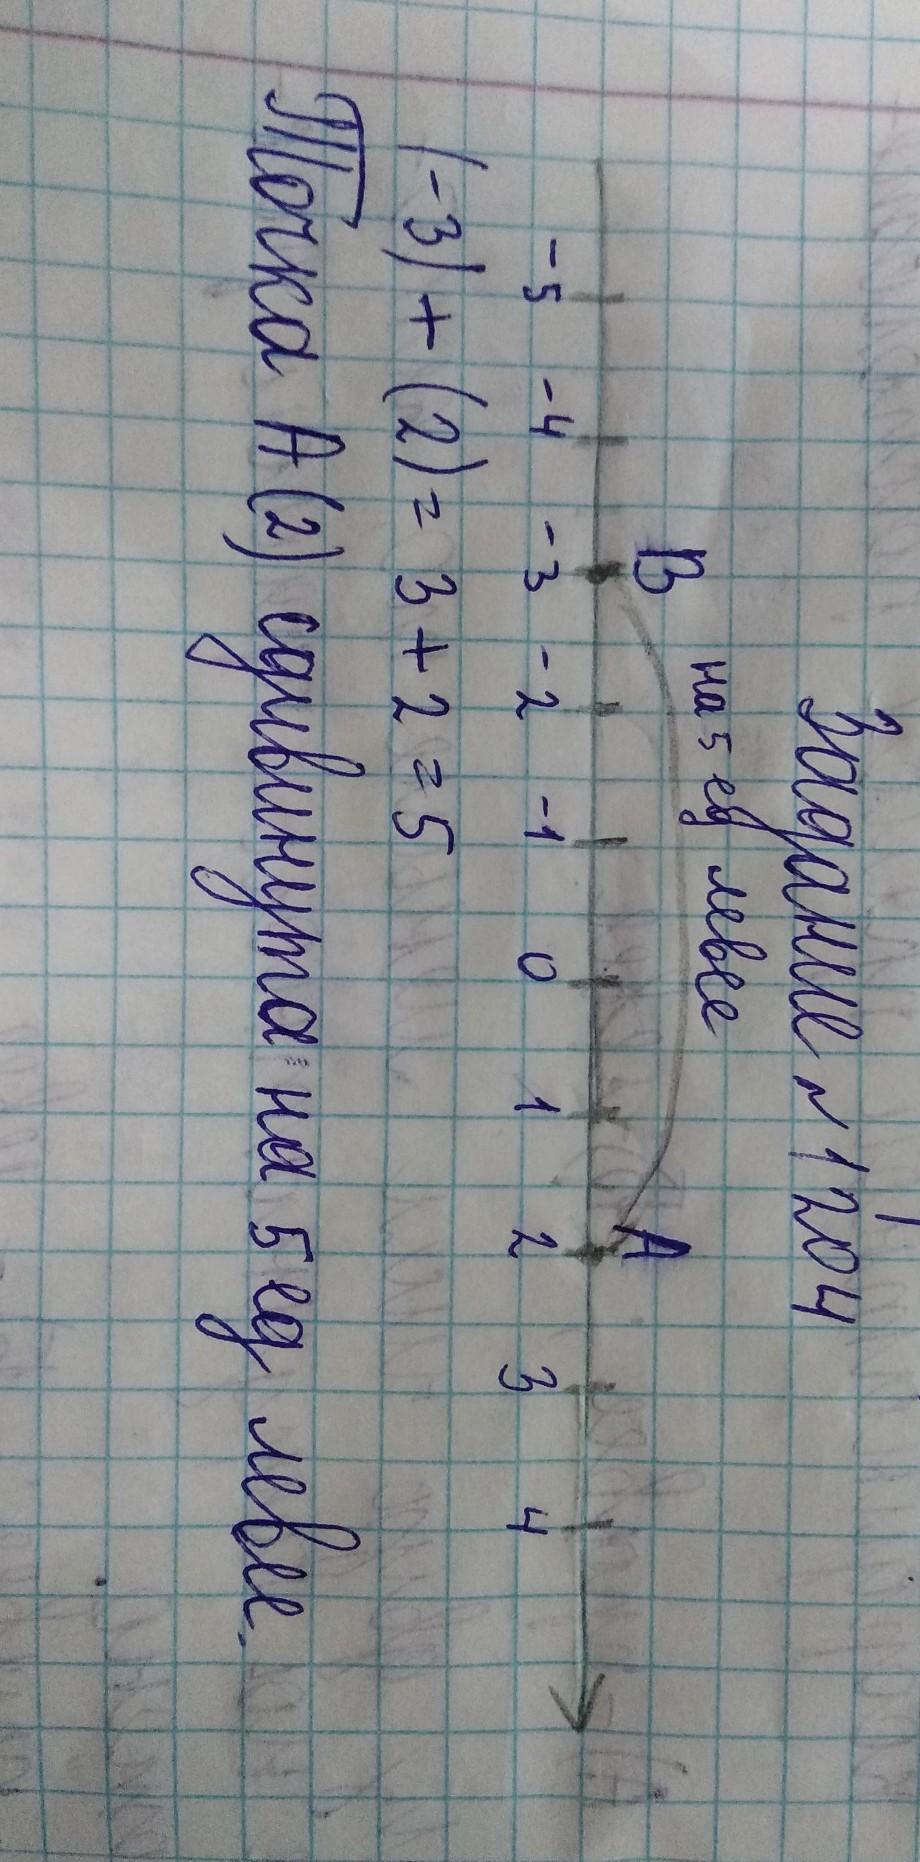 Задание ~ 1204
на 5 ед левее
В А
-5 -4 -3 -2 -1 0 1 2 3 4
(-3) + (2) = 3 + 2 = 5
Точка А (2) сдвинута на 5 ед левее.